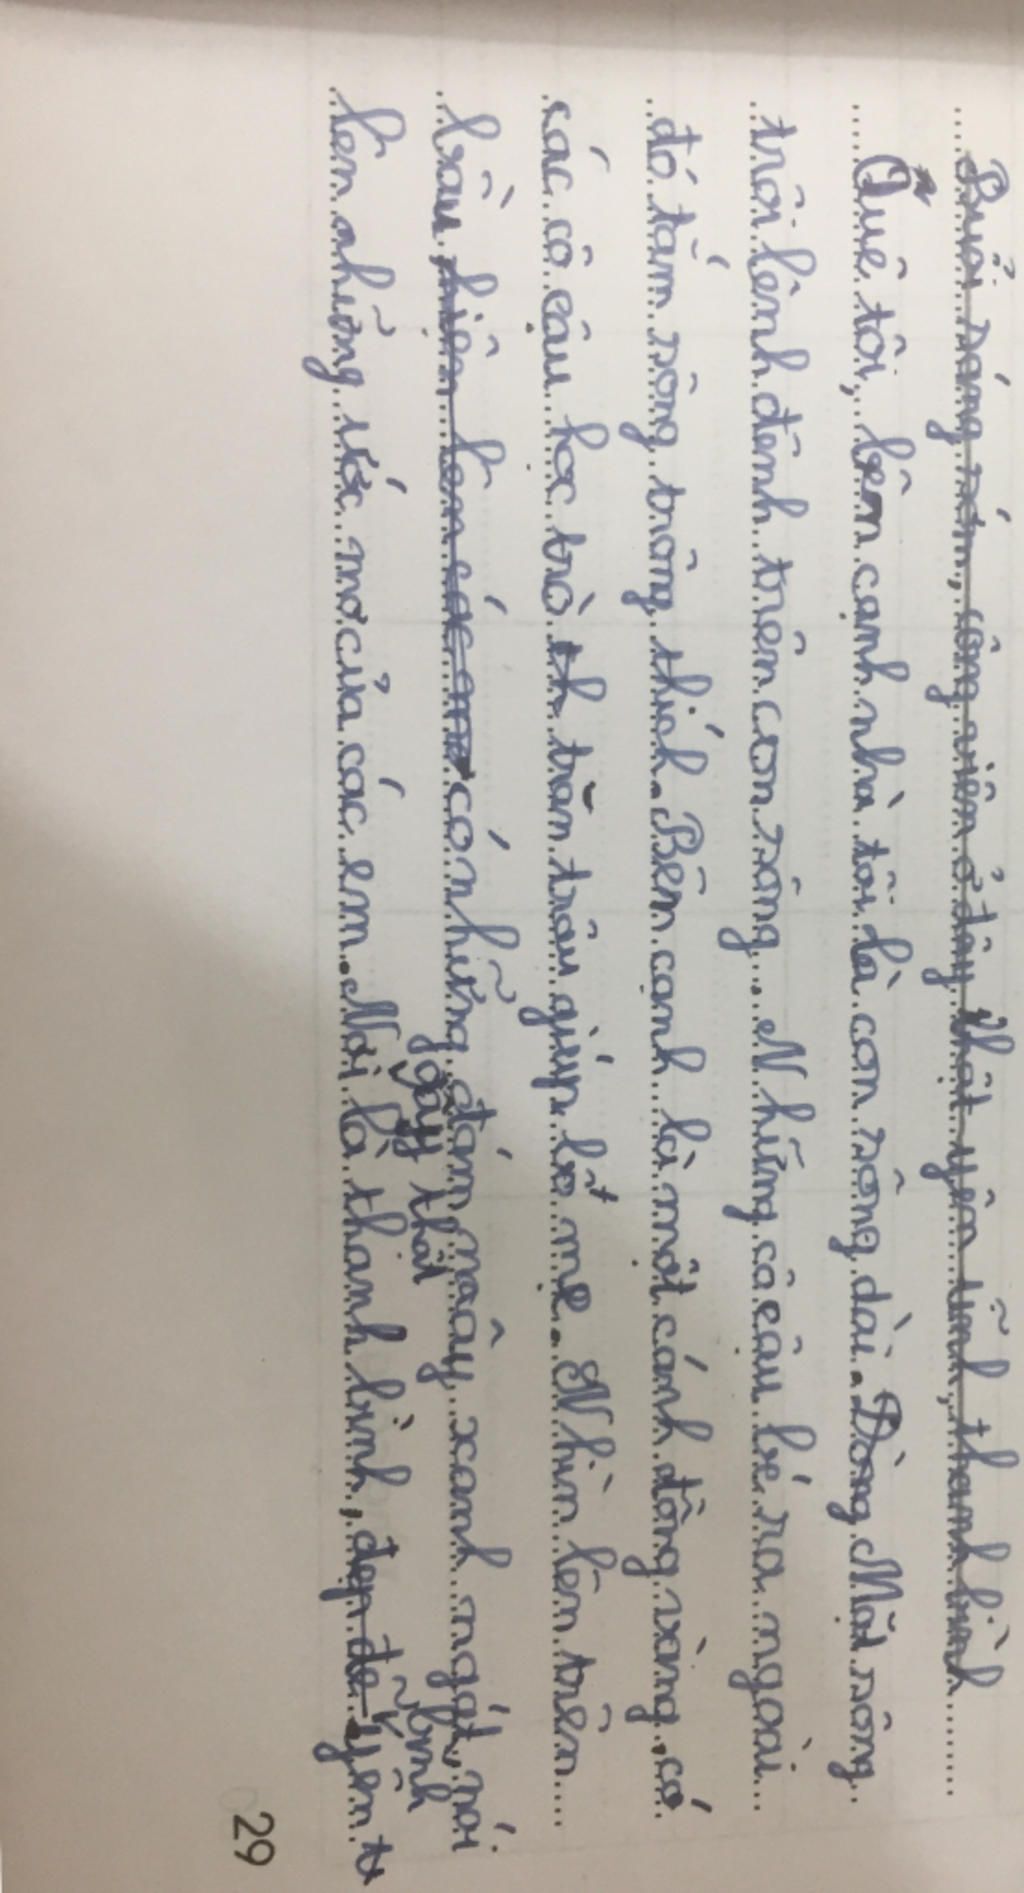 Buổi sáng sớm, công viên ở đây thật yên tĩnh, thanh bình
Ở Quê tôi, bên cạnh nhà tôi là con sông dài. Dòng Mặt sông
trôi lênh đênh trên con sông. Những cô cậu bé ra ngoài
đó tắm sông trông thích. Bên cạnh là một cánh đồng vàng, có
các cô cậu học trò th trăn trâu giúp bố mẹ. Nhìn lên trên
bầu, hiện lên các mơ có những đám mây xanh ngát, nói
lên những ước mơ của các em. Nơi đây thật là thanh bình, đẹp đẽ yên bình t
29